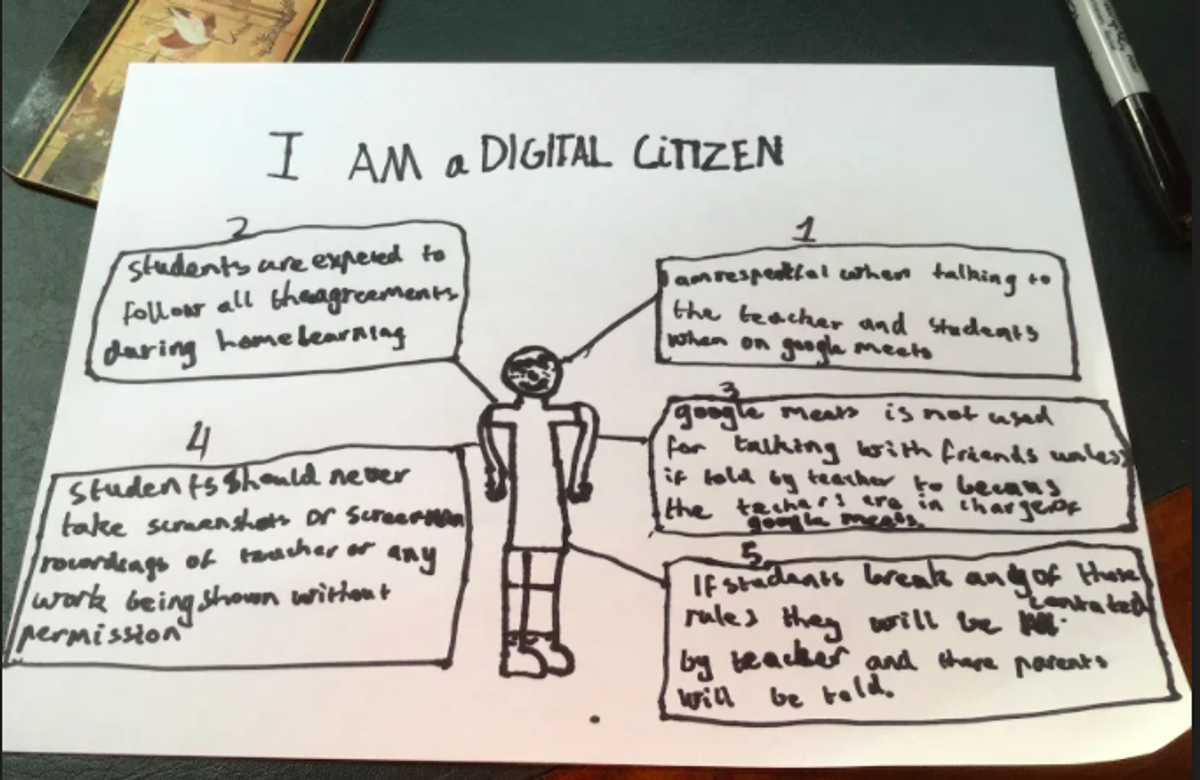 I AM a DIGITAL CiTIZEN
1
I am respectful when talking to
the teacher and students
when on google meets
2
students are expeced to
follow all the agreements
during home learning
3
google meets is not used
for talking with friends unless
if told by teacher to becaus
the teachers are in charge of
google meets.
4
students should never
take screenshots or screen
recordings of teacher or any
work being shown without
permission
5
If students break any of those
rules they will be contated
by teacher and there parents
will be told.